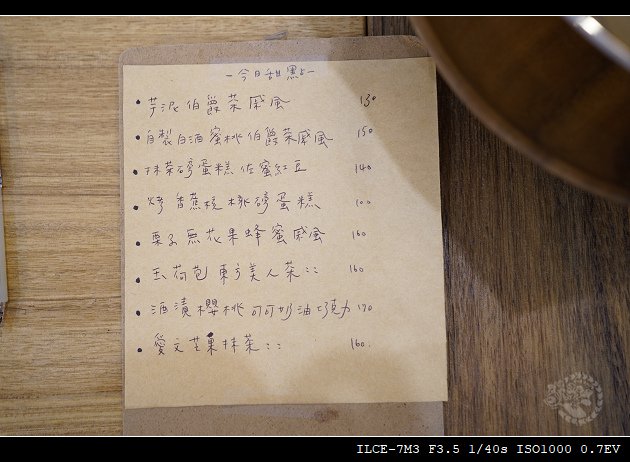 －今日甜點－
• 芋泥伯爵茶戚風 130
• 自製白酒蜜桃伯爵茶戚風 150
• 抹茶磅蛋糕佐蜜紅豆 140
• 烤香蕉核桃磅蛋糕 100
• 栗子無花果蜂蜜戚風 160
• 玉荷包東方美人茶:: 160
• 酒漬櫻桃可可奶油巧克力 170
• 愛文芒果抹茶:: 160.
ILCE-7M3 F3.5 1/40s ISO1000 0.7EV